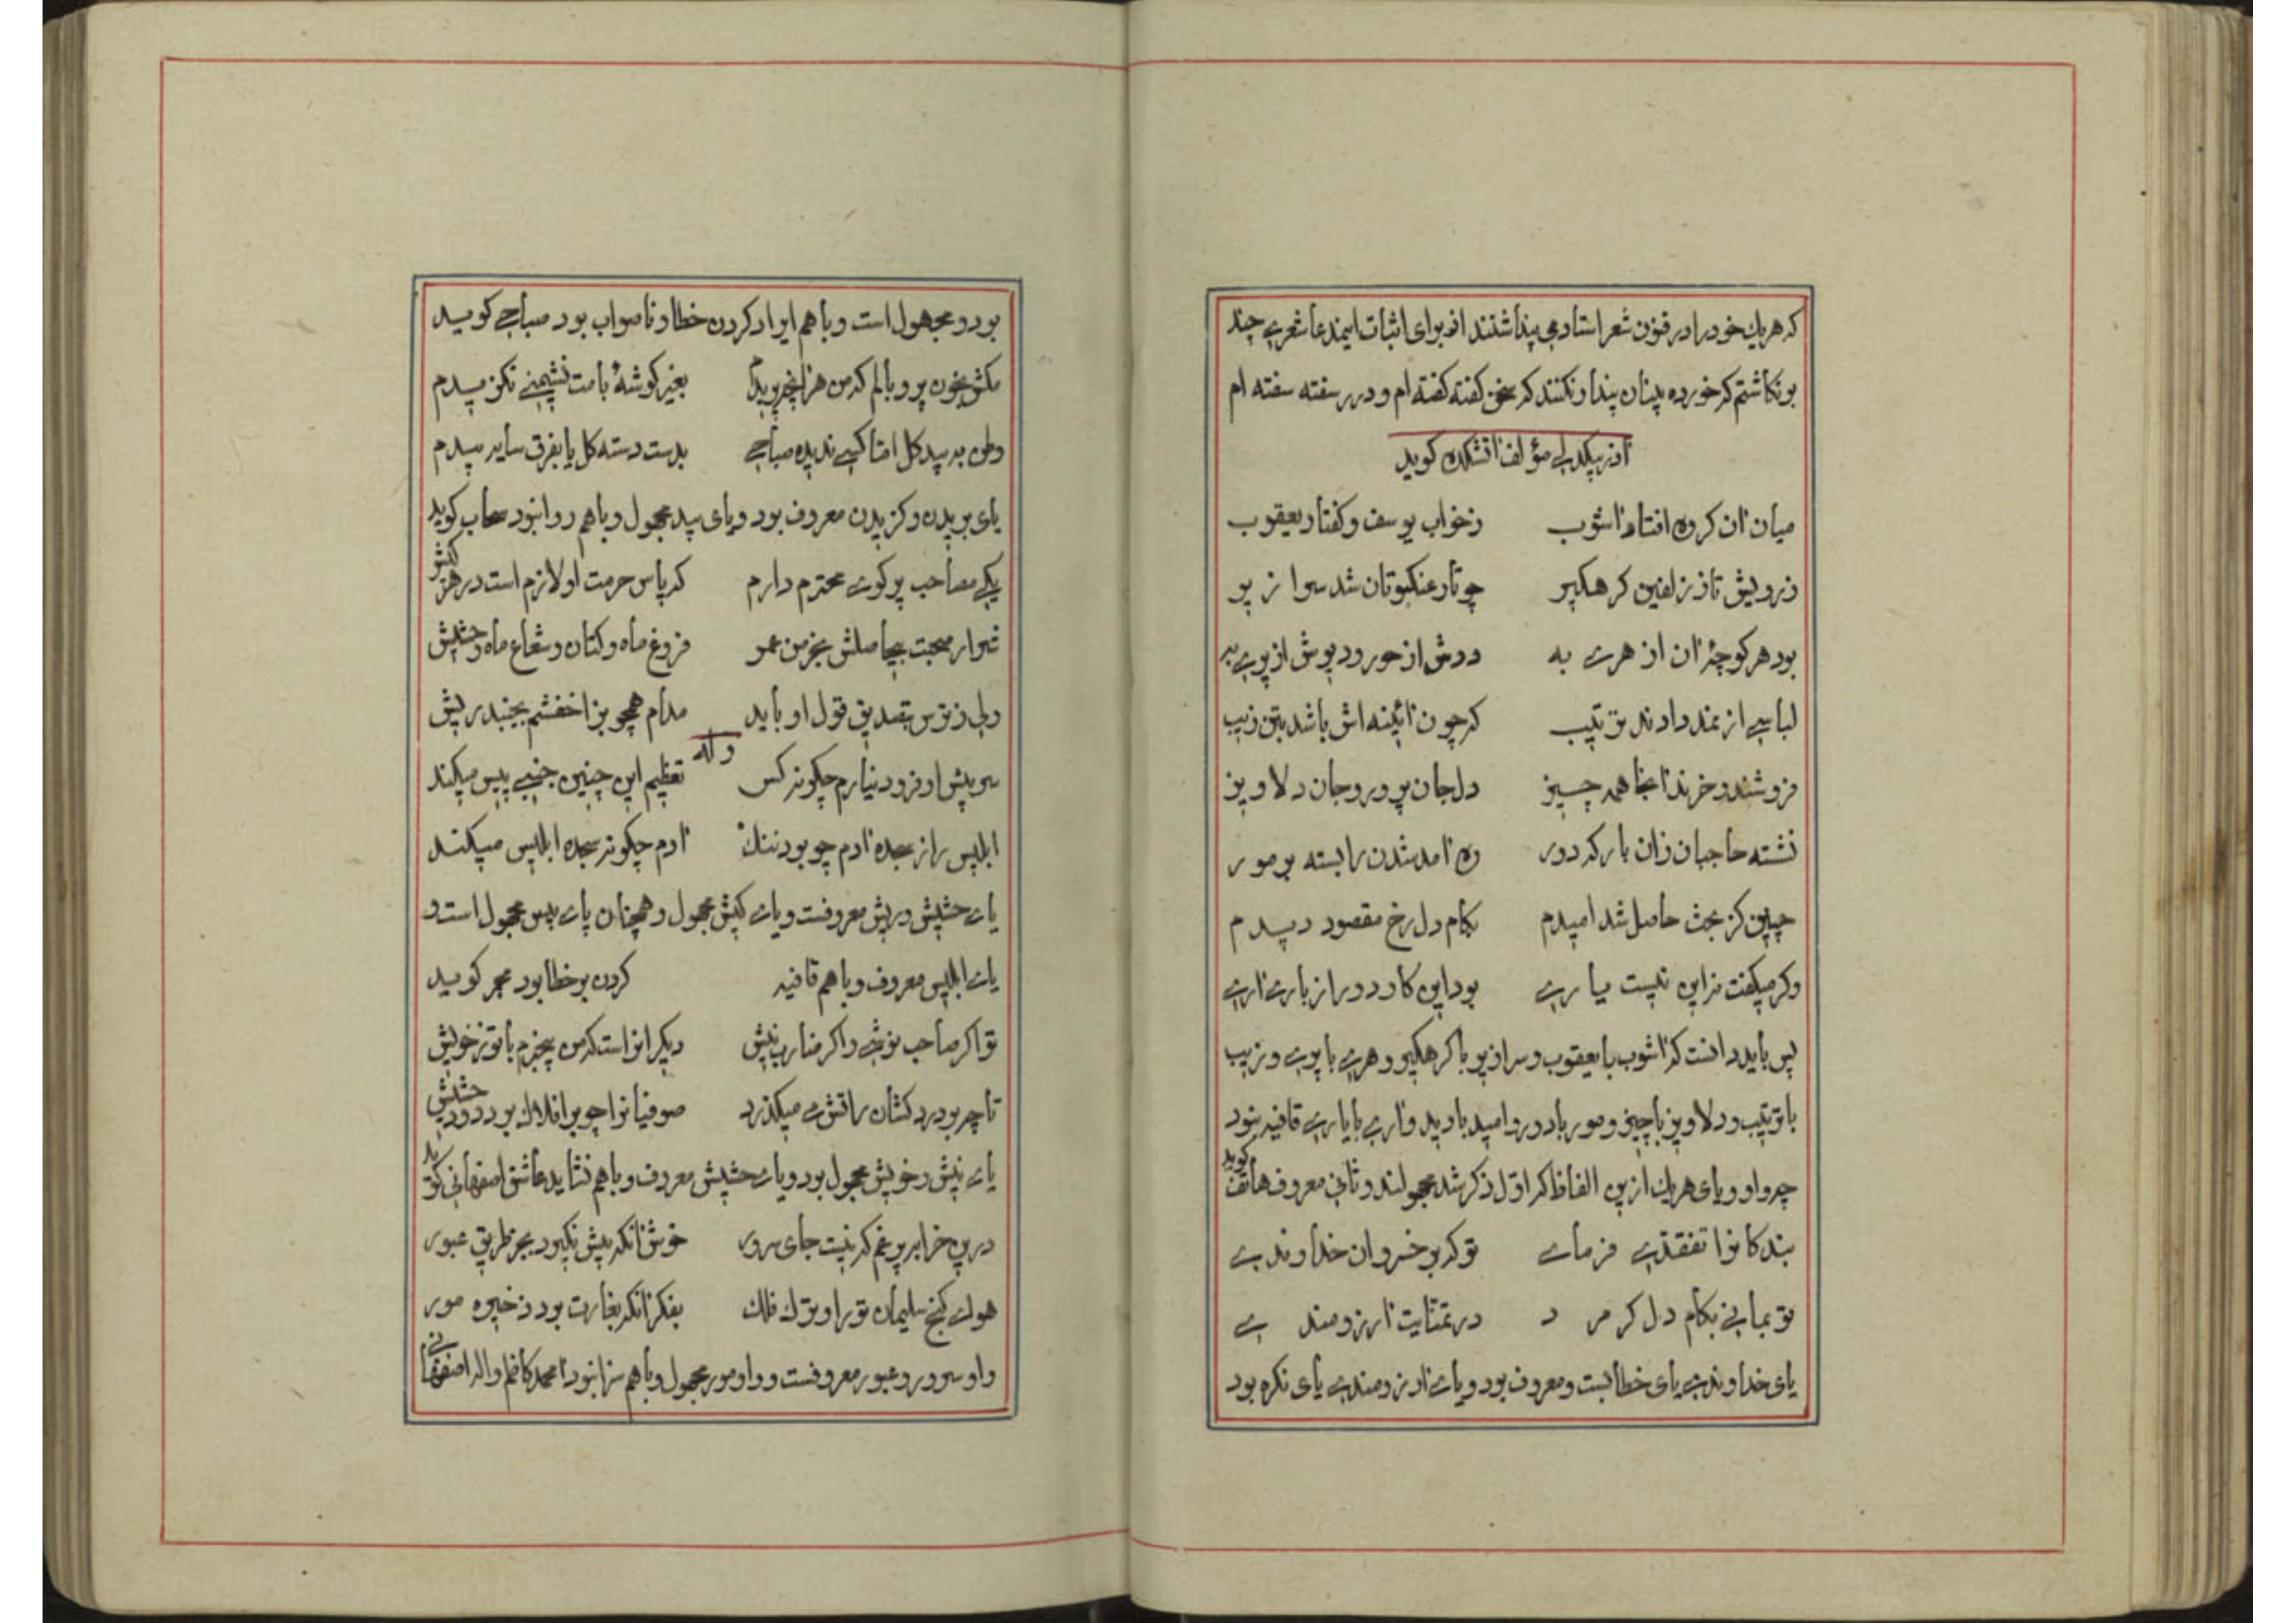 که هریك خود را در فنون شعر استاد می پنداشتند از برای اثبات اینمدعا شعری چند
بر نکاشتم که خورده بینان پندار نکنند که سخن کفته کفته ام و درر سفته سفته ام
آذر بیکدلی مؤلف آتشکده کوید
میان آن کروه افتاد آشوب زخواب یوسف و کفتار یعقوب
زرویش تاز زلفین کرهکیر چو تار عنکبوتان شد سرا زیر
بود هر کوچۀ آن از هری به درش از حور و دیوش از پری به
لباسی از نمد دادند ترتیب که چون آئینه اش باشد بتن زیب
فروشند و خرند آنجا همه چیز دل جان پرور و جان دلاویز
نشسته حاجبان زان بارکه دور ره آمد شدن را بسته بر مور
چنین کز بخت حاصل شد امیدم بکام دل رخ مقصود دیدم
وکر میکفت نزاین نیست یاری بود این کار دور از یاری آری
پس باید دانست که آشوب با یعقوب و سرازیر با کرهکیر و هری با پری و زیب
با ترتیب و دلاویز با چیز و مور با دور و امید با دید و آری با یاری قافیه نبود
چه واو و یای هریك ازین الفاظ که اول ذکر شد مجهولند و ثانی معروف هاتف کوید
بندکانرا تفقدی فرمای تو که بر خسروان خداوندی
تو بمانی بکام دل کر مرد در تمنایت آرزومندی
یای خداوندی یای خطابست و معروف بود و یای آرزومندی یای نکره بود
بود و مجهول است و باهم ایراد کردن خطا و ناصواب بود صباحی کوید
مکش بخون پر و بالم که من هر آنچه پریدم بغیر کوشۀ بامت نشیمنی نکزیدم
وطن به سید کل امّا کسی ندیده صباحی بدست دسته کل یا بفرق سایه بیدم
یای پریدن و کزیدن معروف بود و یای بید مجهول و باهم روا نبود سحاب کوید
یکی مصاحب پرکوی محترم دارم که پاس حرمت او لازم است در هر کیش
شرار صحبت بیحاصلش بخرمن عمر فروغ ماه و کتان و شعاع ماه و حشیش
ولی ز ترس بتصدیق قول او باید مدام همچو بز اخفشم بجنبد ریش
وله
سر پیش او فرود نیارم چکونه کس تعظیم این چنین خبیث پیس میکند
ابلیس را ز سجده آدم چو بود ننك آدم چکونه سجده ابلیس میکند
یای حشیش و ریش معروفست و یای کیش مجهول و همچنان یای پیس مجهول است و
یای ابلیس معروف و باهم قافیه کردن بر خطا بود مجمر کوید
تو اکر صاحب نوشی و اکر ضارب نیش دیکر انراست که من بیخبرم با تو ز خویش
تا چه بر درد کشان آتش می میکذرد صوفیانرا چو بر افلاك بود دود حشیش
یای نیش و خویش مجهول بود و یای حشیش معروف و باهم نشاید عاشق اصفهانی کوید
درین خرابه پر غم که نیست جای سرور خوش آنکه پیش نکیرد بجز طریق عبور
هوای کنج سلیمان تورا و ترك فلك بفکر آنکه بغارت برد ذخیره مور
واو سرور و عبور معروفست و واو مور مجهول و باهم سزا نبود آقا محمد کاظم واله اصفهانی